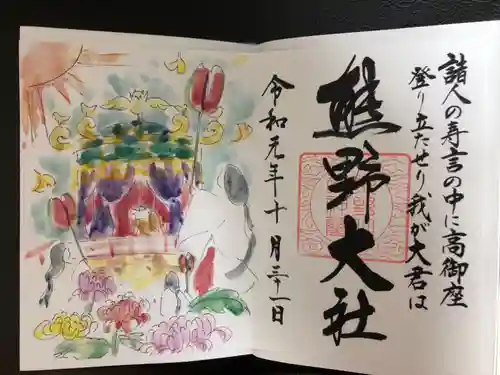 詣人の寿言の中に高御座
登り立たせり我が大君は
熊野大社
令和元年十月三十一日